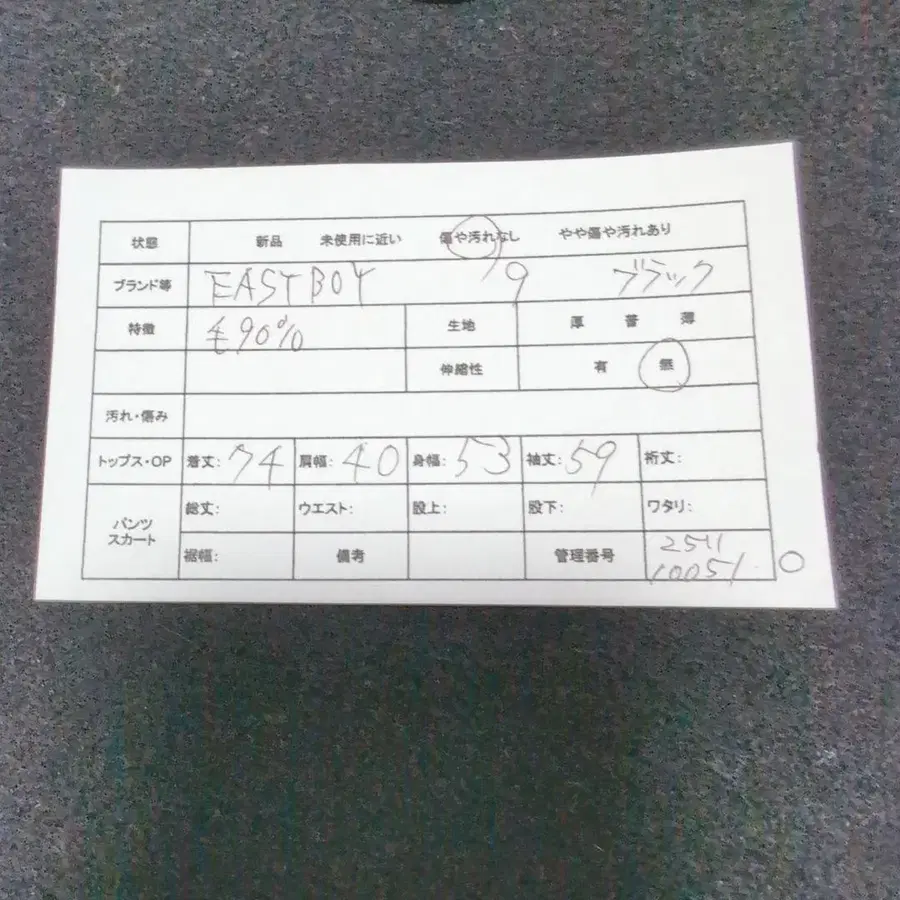 状態 新品 未使用に近い 傷や汚れなし やや傷や汚れあり
ブランド等 EASTBOY 9 ブラック
特徴 毛90% 生地 厚 普 薄
伸縮性 有 無
汚れ・傷み
トップス・OP 着丈:74 肩幅:40 身幅:53 袖丈:59 裄丈:
パンツ スカート 総丈: ウエスト: 股上: 股下: ワタリ:
裾幅: 備考 管理番号 2511 10051